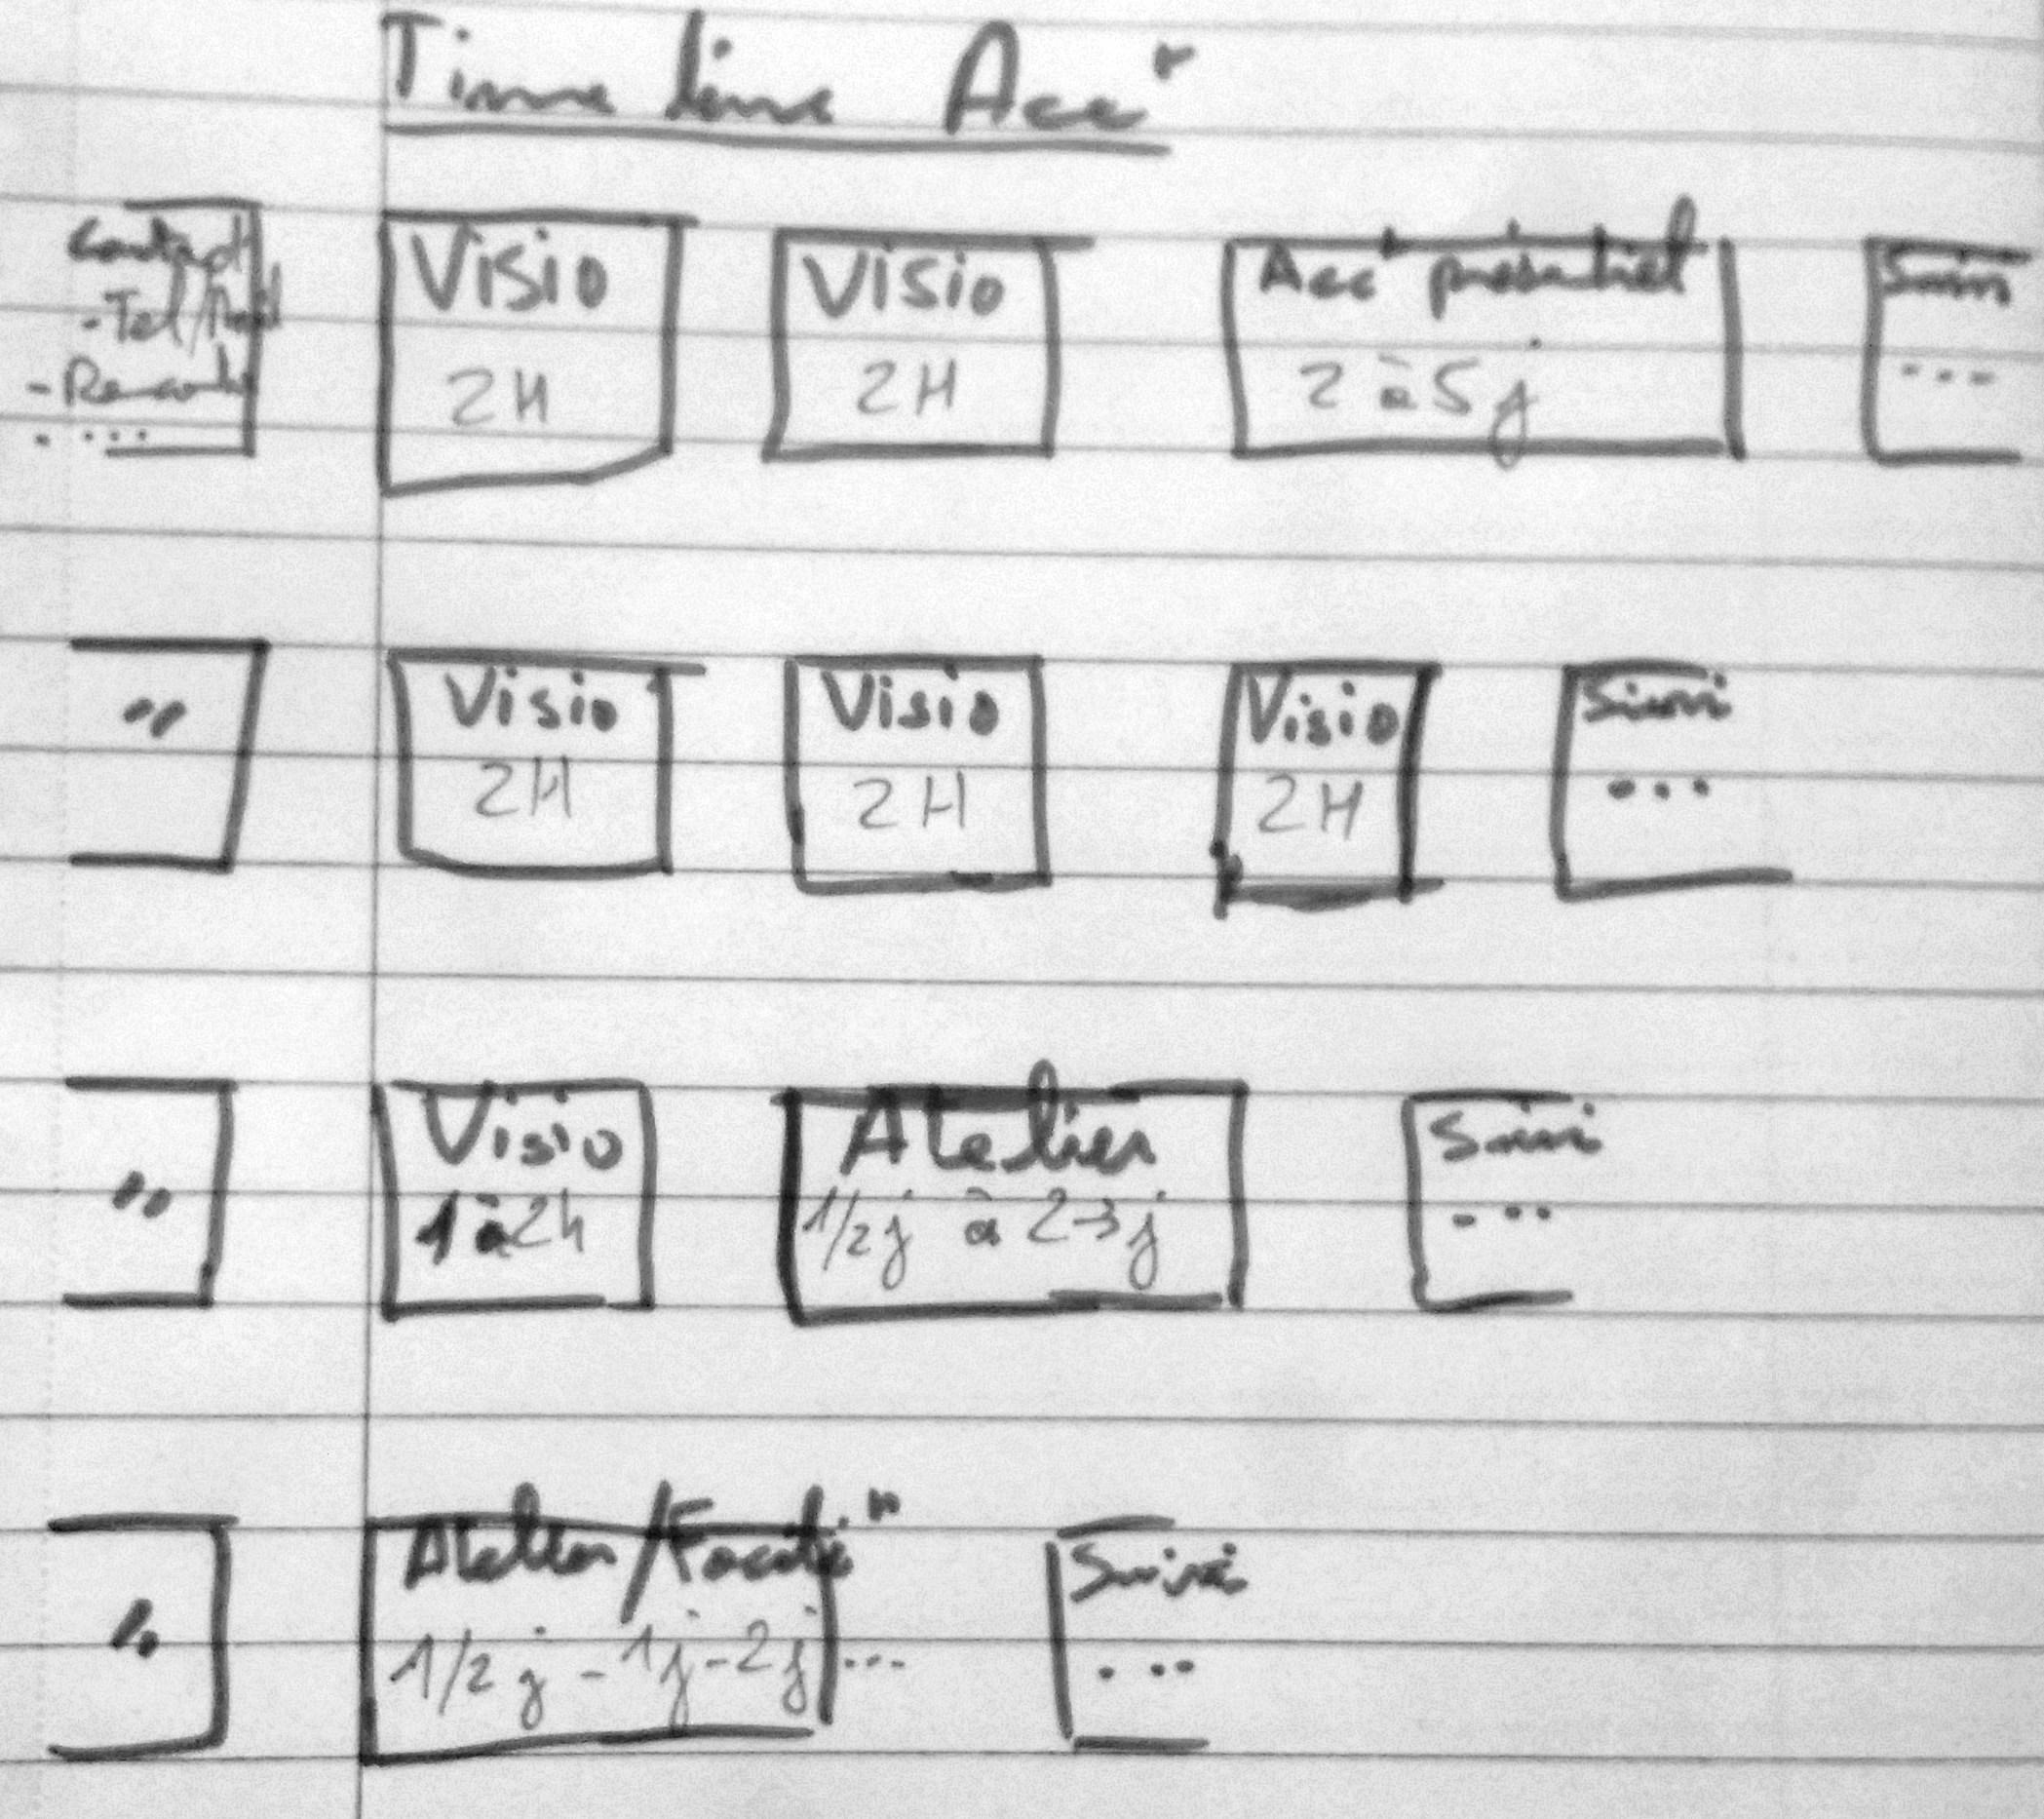 Time line Acc^t
Contact Visio Visio Acc^t présentiel Suivi
- Tel/Mail
- Rencontre 2H 2H 2 à 5 j ...
....
" Visio Visio Visio Suivi
2H 2H 2H ...
" Visio Atelier Suivi
1 à 2h 1/2 j à 2-3 j ...
" Atelier/Facili^n Suivi
1/2 j - 1j - 2j ... ...